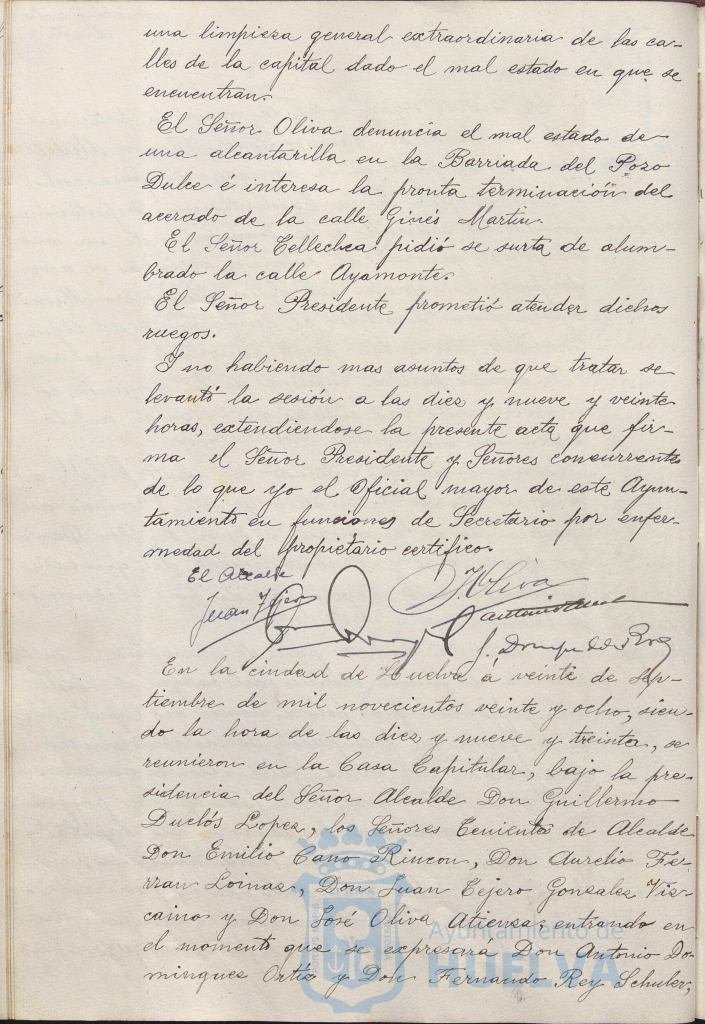 una limpieza general extraordinaria de las ca-
lles de la capital dado el mal estado en que se
encuentran.
El Señor Oliva denuncia el mal estado de
una alcantarilla en la Barriada del Pozo
Dulce é interesa la pronta terminación del
acerado de la calle Ginés Martin.
El Señor Tellechea pidió se surta de alum-
brado la calle Ayamonte.
El Señor Presidente prometió atender dichos
ruegos.
Y no habiendo mas asuntos de que tratar se
levantó la sesión a las diez y nueve y veinte
horas, extendiendose la presente acta que fir-
ma el Señor Presidente y Señores concurrentes
de lo que yo el Oficial mayor de este Ayun-
tamiento en funciones de Secretario por enfer-
medad del propietario certifico.
El Alcalde
Juan Tejero
J. Oliva
Antonio
En la ciudad de Huelva á veinte de Sep-
tiembre de mil novecientos veinte y ocho, sien-
do la hora de las diez y nueve y treinta, se
reunieron en la Casa Capitular, bajo la pre-
sidencia del Señor Alcalde Don Guillermo
Duclós Lopez, los Señores Tenientes de Alcalde
Don Emilio Cano Rincon, Don Aurelio Fe-
rran Loinaz, Don Juan Tejero Gonzalez Viz-
caino y Don José Oliva Atienza, entrando en
el momento que se expresara Don Antonio Do-
minguez Ortiz y Don Fernando Rey Schuler,
Ayuntamiento de
HUELVA